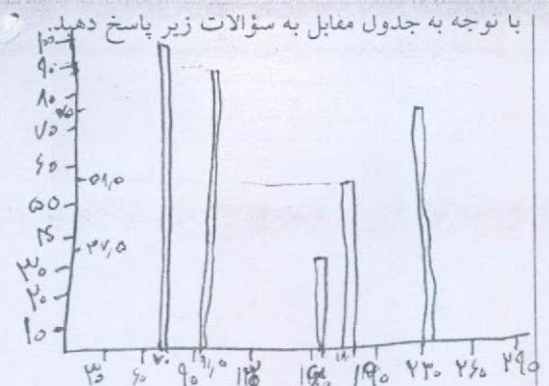 با توجه به جدول مقابل به سؤالات زیر پاسخ دهید.
۱۰۰
۹۰
۸۰
۷۵
۷۰
۶۰
۵۸٫۵
۵۰
۴۰
۳۷٫۵
۳۰
۲۰
۱۰
۳۰ ۶۰ ۷۰ ۹۰ ۱۸۰ ۱۹۰ ۲۳۰ ۲۶۰ ۲۹۰